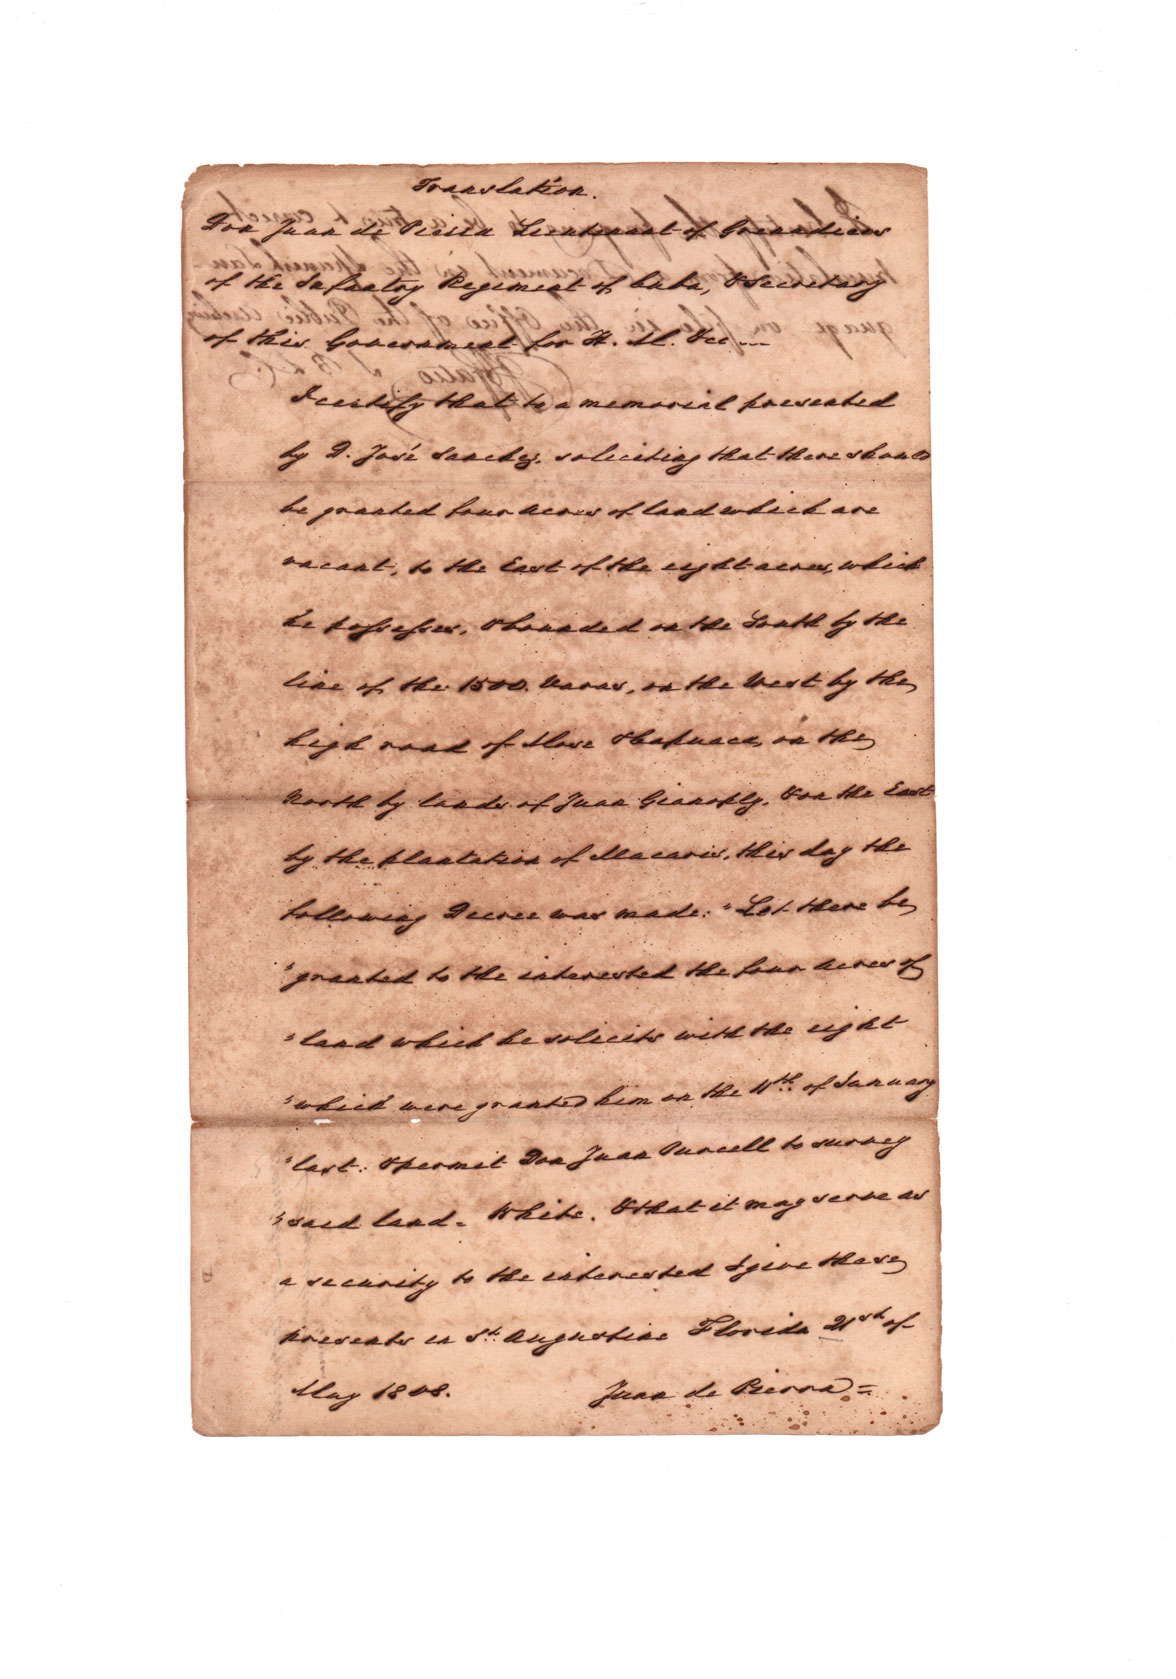 Translation.
Don Juan de Pierra Lieutenant of Grenadiers
of the Infantry Regiment of Cuba, & Secretary
of this Government for H. M. &cc —
I certify that to a memorial presented
by D. José Sanchez, soliciting that there should
be granted four acres of land which are
vacant, to the East of the eight acres, which
he possesses, & bounded on the South by the
line of the 1500 Varas, on the West by the
high road of Mose & Capuaca, on the
North by lands of Juan Gianoply, & on the East
by the plantation of Macaris, this day the
following Decree was made: "Let there be
"granted to the interested the four acres of
"land which he solicits with the eight
"which were granted him on the 11th of January
"last: & permit Don Juan Purcell to survey
"said land = White. & that it may serve as
a security to the interested I give these
presents in St. Augustine Florida 21st of
May 1808. Juan de Pierra =